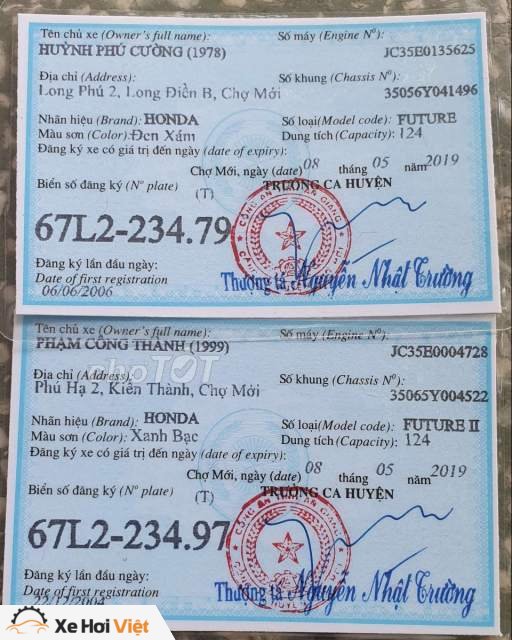 Tên chủ xe (Owner's full name): Số máy (Engine Nº):
HUỲNH PHÚ CƯỜNG (1978) JC35E0135625
Địa chỉ (Address): Số khung (Chassis Nº):
Long Phú 2, Long Điền B, Chợ Mới 35056Y041496
Nhãn hiệu (Brand): HONDA Số loại(Model code): FUTURE
Màu sơn (Color): Đen Xám Dung tích (Capacity): 124
Đăng ký xe có giá trị đến ngày (date of expiry):
Chợ Mới, ngày (date) 08 tháng 05 năm 2019
Biển số đăng ký (Nº plate) (T) TRƯỞNG CA HUYỆN
67L2-234.79
Đăng ký lần đầu ngày:
Date of first registration Thượng tá Nguyễn Nhật Trường
06/06/2006
Tên chủ xe (Owner's full name): Số máy (Engine Nº):
PHẠM CÔNG THÀNH (1999) JC35E0004728
Địa chỉ (Address): Số khung (Chassis Nº):
Phú Hạ 2, Kiến Thành, Chợ Mới 35065Y004522
Nhãn hiệu (Brand): HONDA Số loại(Model code): FUTURE II
Màu sơn (Color): Xanh Bạc Dung tích (Capacity): 124
Đăng ký xe có giá trị đến ngày (date of expiry):
Chợ Mới, ngày (date) 08 tháng 05 năm 2019
Biển số đăng ký (Nº plate) (T) TRƯỞNG CA HUYỆN
67L2-234.97
Đăng ký lần đầu ngày:
Date of first registration Thượng tá Nguyễn Nhật Trường
22/12/2004
Xe Hơi Việt